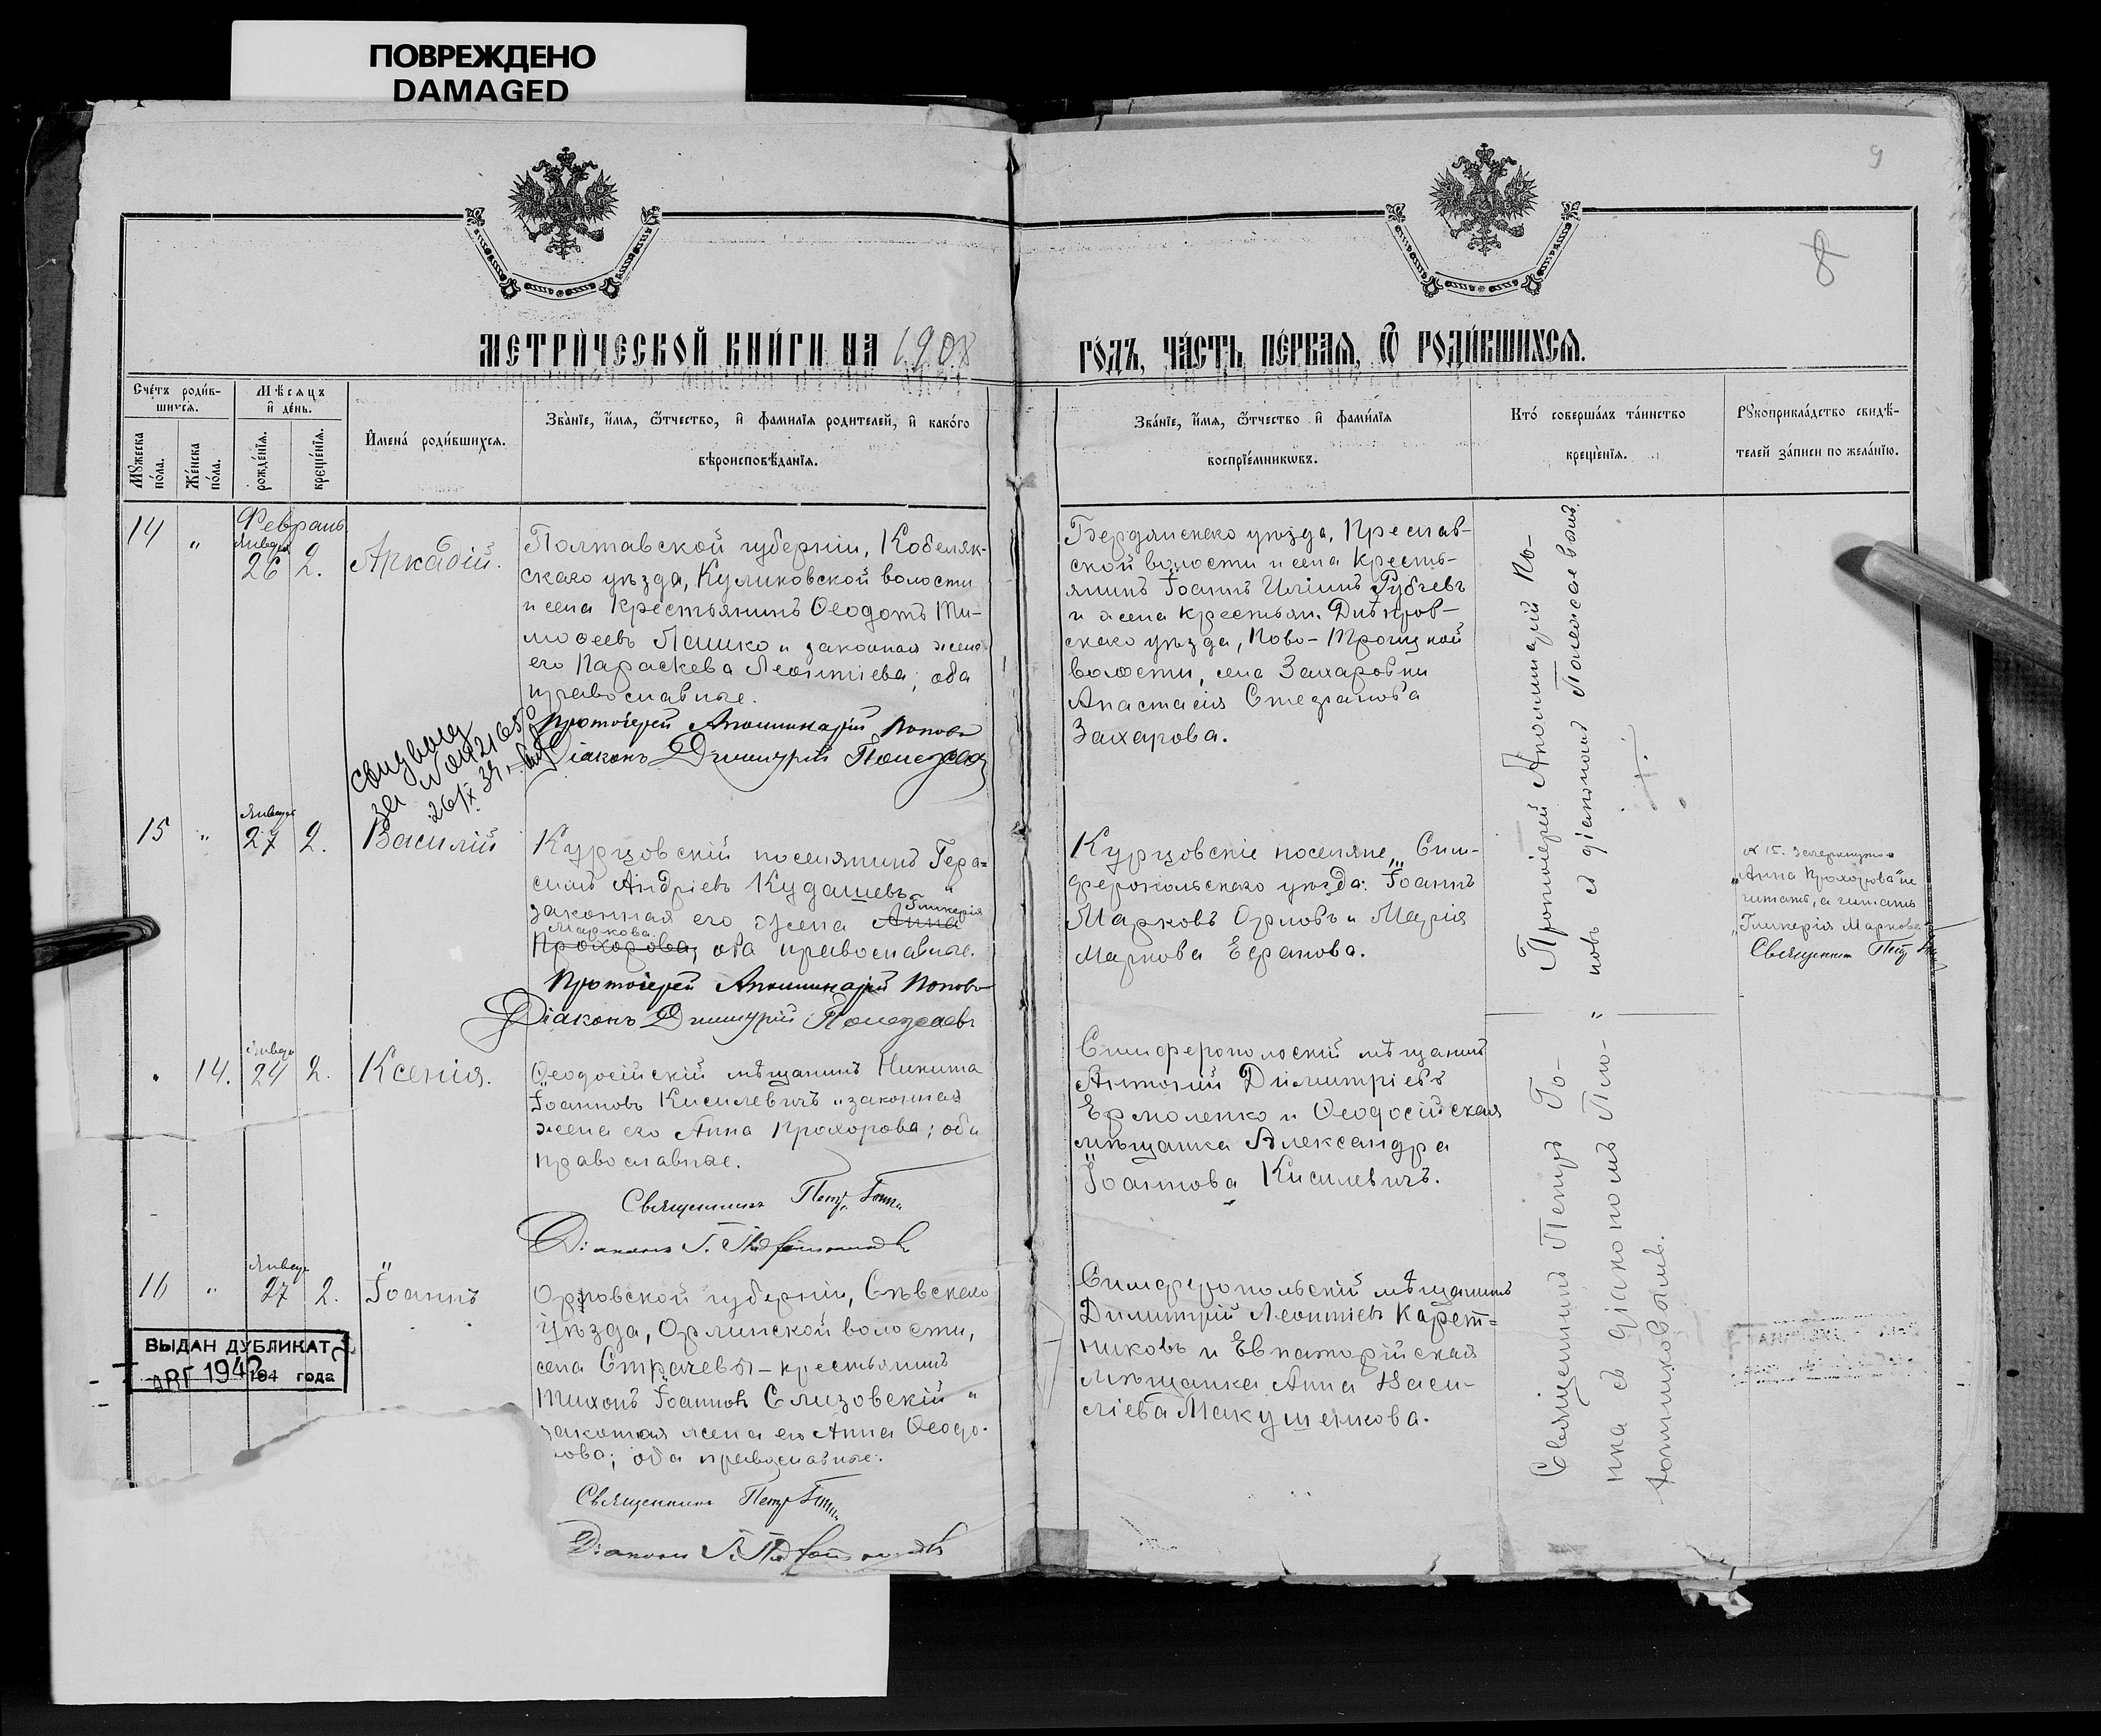 ПОВРЕЖДЕНО
DAMAGED
9
8
МЕТРИЧЕСКОЙ КНИГИ НА 1908
ГОДЪ, ЧАСТЬ ПЕРВАЯ, Ѿ РОДИВШИХСЯ.
Счетъ родив-
шихся.
Мужеска пола.
Женска пола.
Мѣсяцъ
и день.
рожденія.
крещенія.
Имена родившихся.
Званіе, имя, ѿчество, и фамилія родителей, и какого
вѣроисповѣданія.
Званіе, имя, ѿчество и фамилія
воспріемниковъ.
Кто совершалъ таинство
крещенія.
Рукоприкладство свидѣ-
телей записи по желанію.
Февраль
14 " Января 26 2. Аркадій.
Полтавской губерніи, Кобеляк-
скаго уѣзда, Куликовской волости
и села крестьянинъ Ѳеодотъ Ти-
моѳеевъ Пашко и законная жена
его Параскева Леонтіева; оба
православные.
Протоіерей Аполлинарій Поповъ
Діаконъ Димитрій Полежаевъ
Бердянскаго уѣзда, Преслав-
ской волости и села кресть-
янинъ Іоаннъ Иліинъ Губчевъ
и жена крестьян. Днѣпров-
скаго уѣзда, Ново-Троицкой
волости, села Захаровки
Анастасія Стефанова
Захарова.
Протоіерей Аполлинарій По-
повъ съ діакономъ Полежаевымъ.
за №
26/X 39
15 " Января 27 2. Василій
Курцовскій поселянинъ Гера-
симъ Андріевъ Кудашевъ и
законная его жена Анна Гликерія
Маркова.
Прохорова; оба православные.
Протоіерей Аполлинарій Поповъ
Діаконъ Димитрій Полежаевъ
Курцовскіе поселяне, Сим-
феропольскаго уѣзда: Іоаннъ
Марковъ Орловъ и Марія
Маркова
№ 15. Зачеркнутое
"Анна Прохорова" не
читать, а читать
"Гликерія Маркова"
Священникъ Петръ
14. Января 24 2. Ксенія.
Ѳеодосійскій мѣщанинъ Никита
Іоанновъ Кисилевичъ и законная
жена его Анна Прохорова; оба
православные.
Священникъ Петръ
Діаконъ
Симферополоскій мѣщанинъ
Антоній Димитріевъ
Ермоленко и Ѳеодосійская
мѣщанка Александра
Іоаннова Кисилевичъ.
Священникъ Петръ Го-
съ діакономъ
16 " Января 27 2. Іоаннъ
Орловской губерніи, Сѣвскаго
Уѣзда, Орлинской волости,
села Страчевы - крестьянинъ
Тихонъ Іоанновъ Слизовскій и
законная жена его Анна Ѳеодо-
ова; оба православные.
Священникъ Петръ
Діаконъ
Симферопольскій мѣщанинъ
Димитрій Леонтіевъ Карет-
никовъ и Евпаторійская
Мѣщанка Анна Васи-
ліева Макушенкова.
ВЫДАН ДУБЛИКАТ
АВГ 1942 194 года